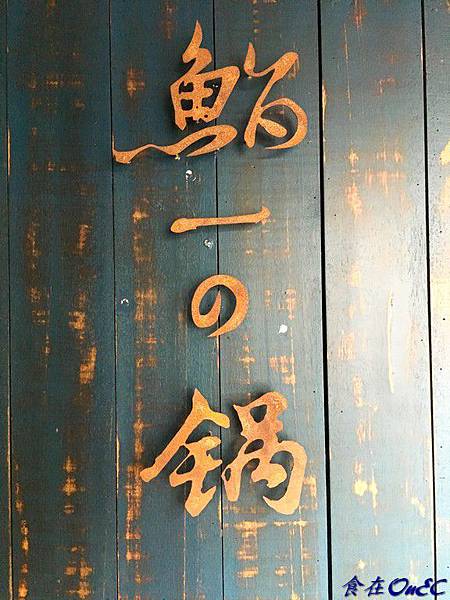 鮨一の鍋
食在OnEC